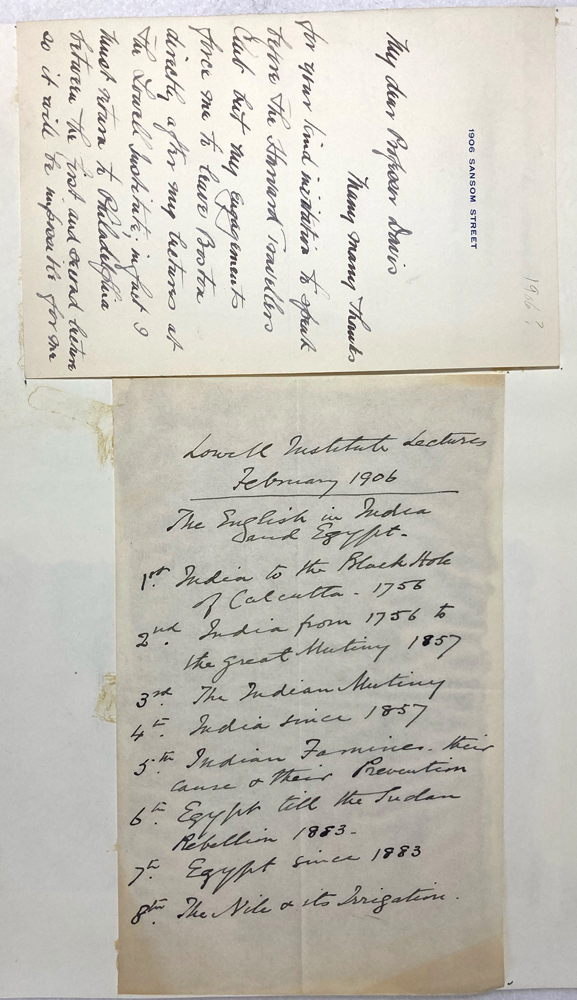 1906 SANSOM STREET
1906?
My dear Professor Davis
Many many thanks
for your kind invitation to speak
before the Harvard Travellers
Club but my engagements
force me to leave Boston
directly after my lectures at
the Lowell Institute; in fact I
must return to Philadelphia
between the first and second lecture
so it will be impossible for me
Lowell Institute Lectures
February 1906
The English in India
and Egypt.
1st India to the Black Hole
of Calcutta - 1756
2nd. India from 1756 to
the great Mutiny 1857
3rd. The Indian Mutiny
4th. India since 1857
5th. Indian Famines - their
cause & their Prevention
6th. Egypt till the Sudan
Rebellion 1883 -
7th. Egypt since 1883
8th. The Nile & its Irrigation.